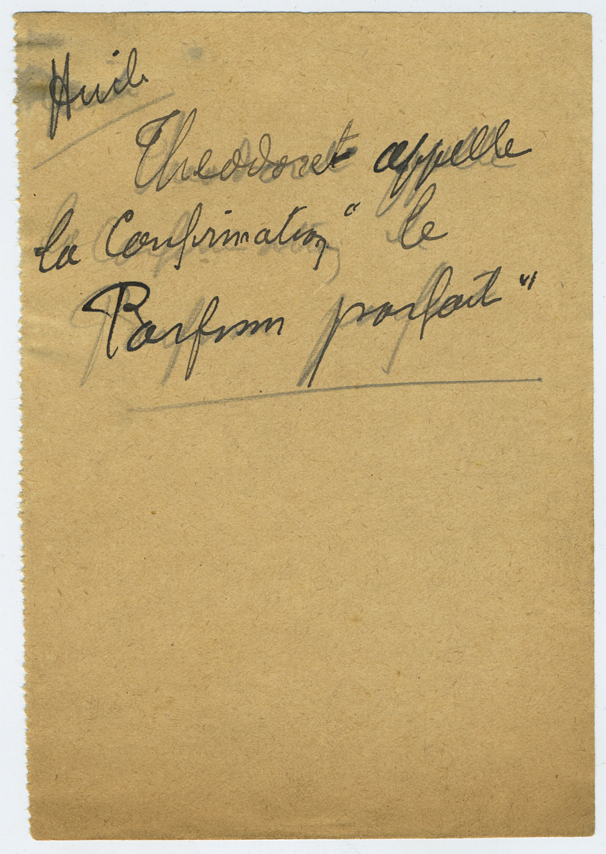 Huile
Theodoret appelle
la Confirmation " le
Parfum parfait "